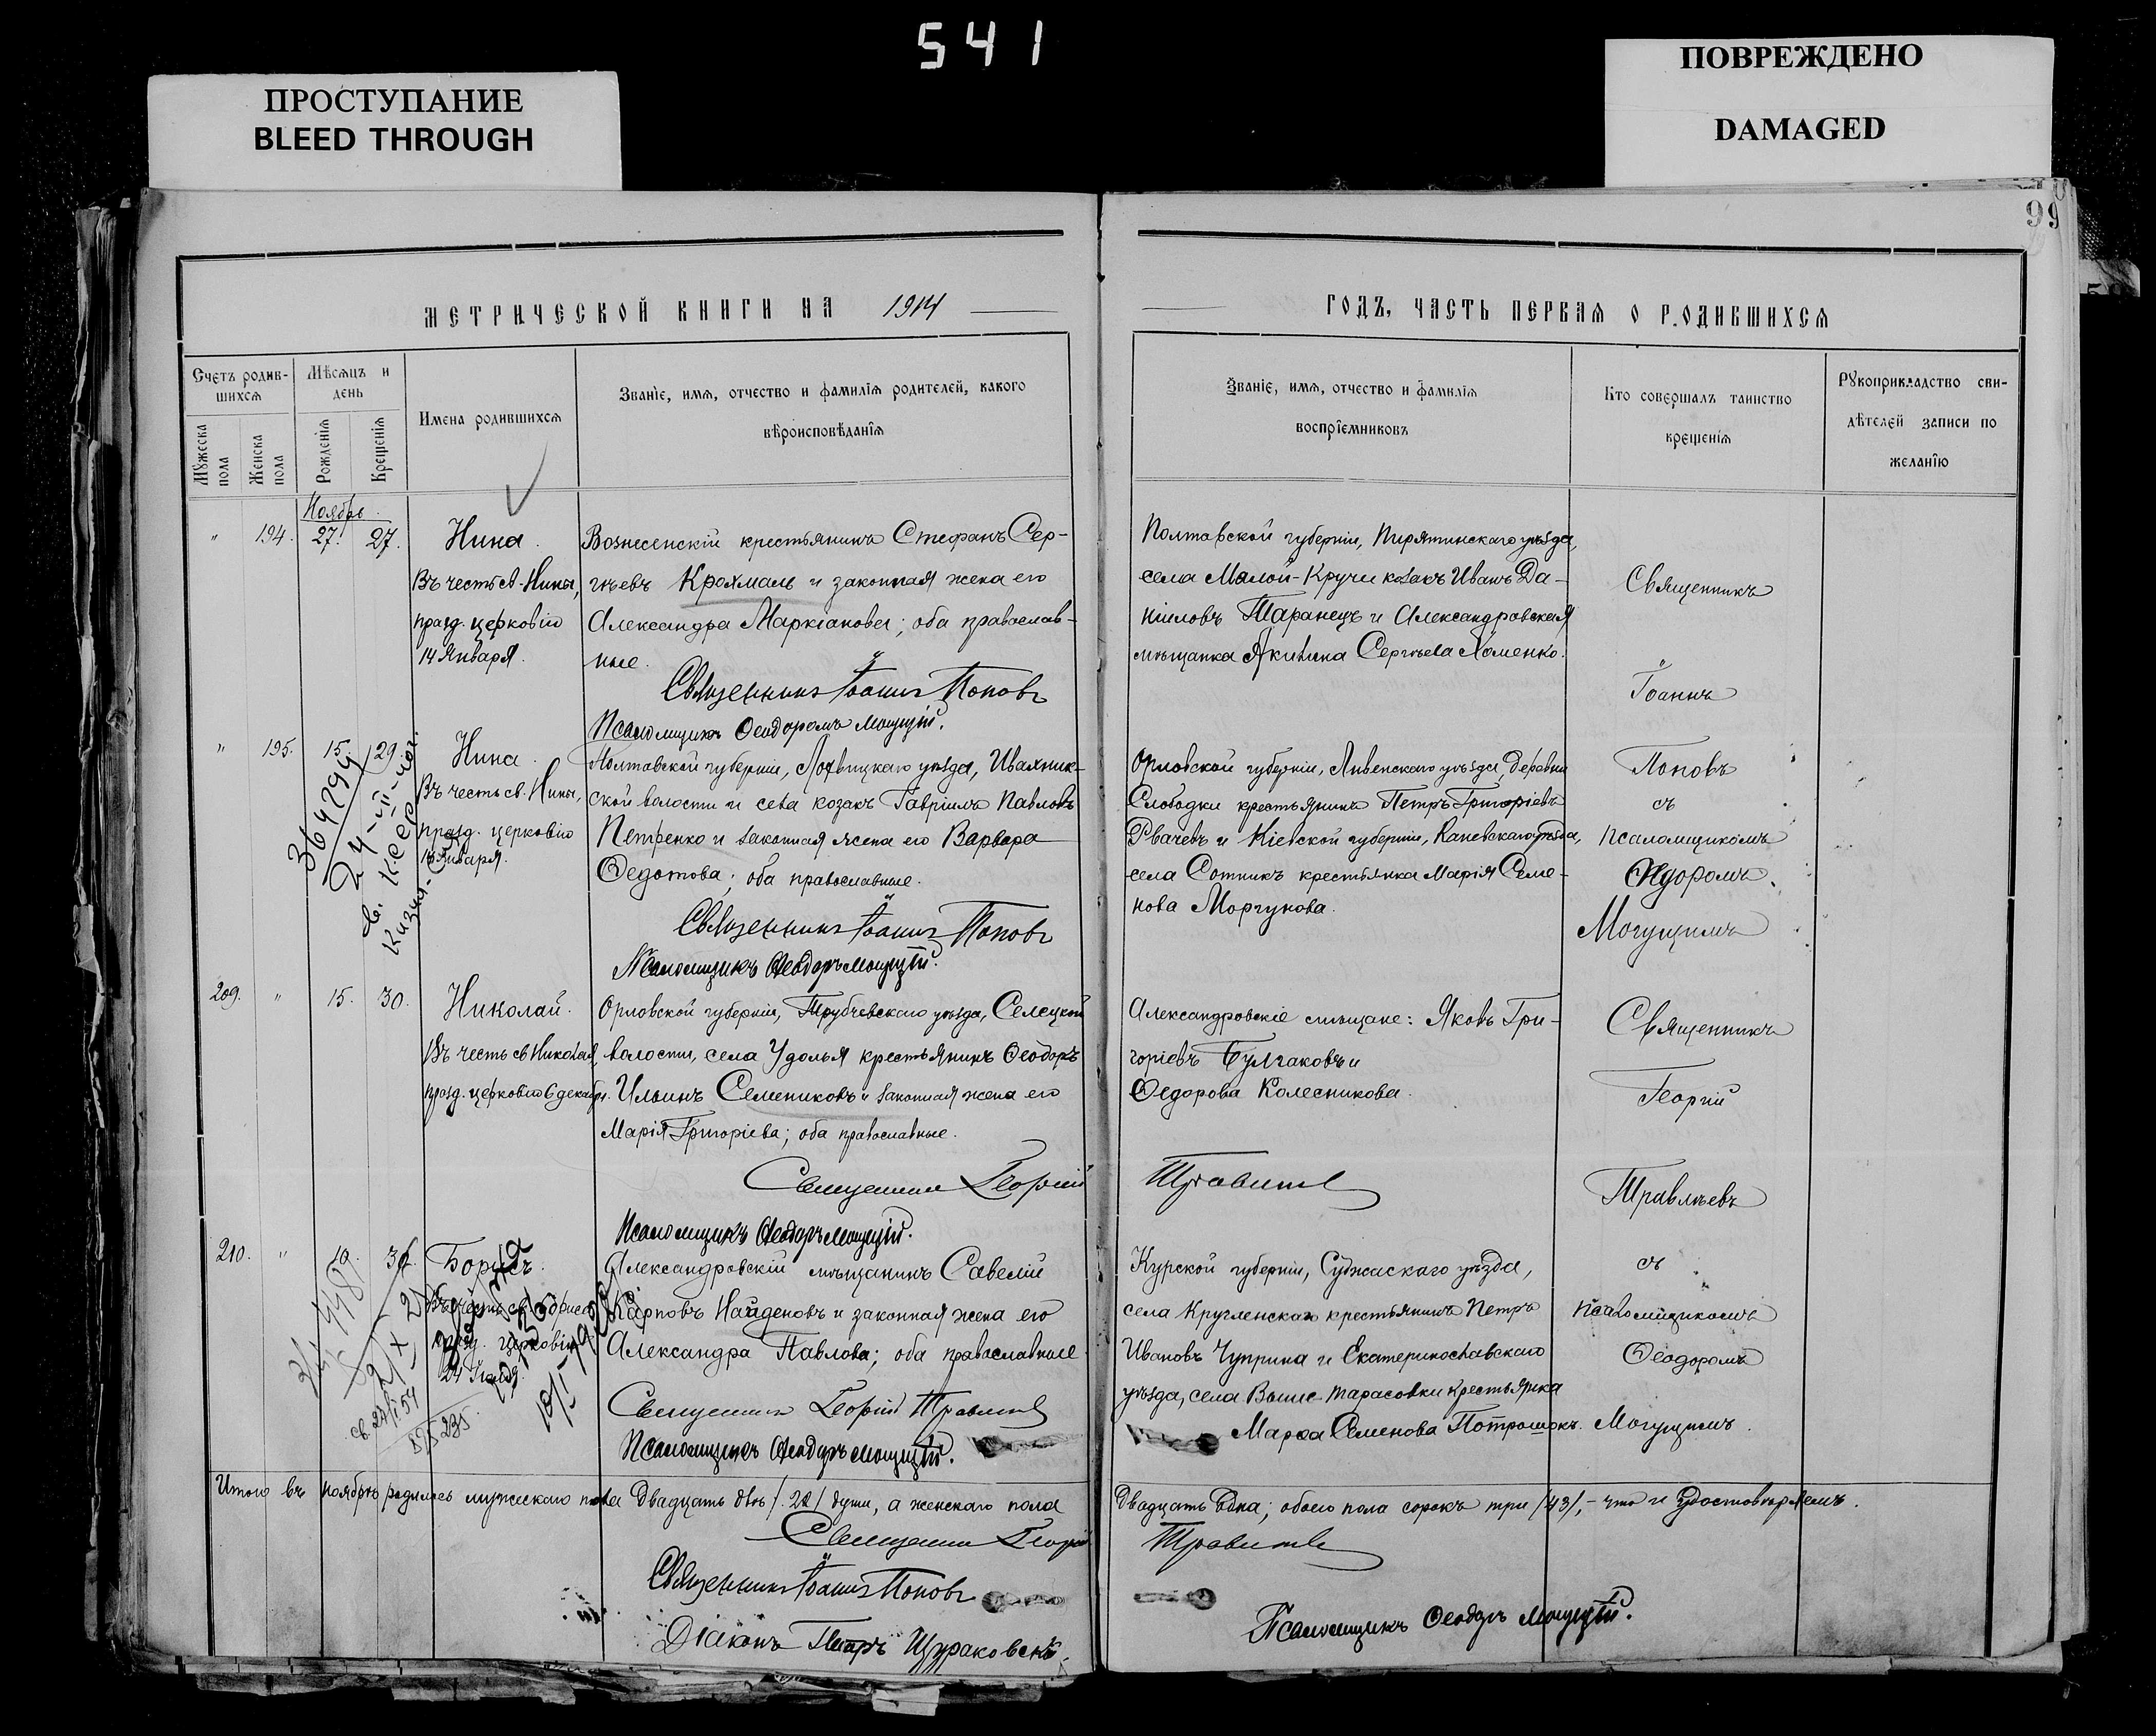 541
ПРОСТУПАНИЕ
BLEED THROUGH
ПОВРЕЖДЕНО
DAMAGED
99
МЕТРИЧЕСКОЙ КНИГИ НА 1914
ГОДЪ, ЧАСТЬ ПЕРВАЯ О РОДИВШИХСЯ
Счетъ родив-
шихся
Мужеска пола
Женска пола
Мѣсяцъ и
день
Рожденія
Крещенія
Имена родившихся
Званіе, имя, отчество и фамилія родителей, какого
вѣроисповѣданія
Званіе, имя, отчество и фамилія
воспріемниковъ
Кто совершалъ таинство
крещенія
Рукоприкладство сви-
дѣтелей записи по
желанію
Ноябрь.
" 194. 27. 27.
Нина.
Въ честь св. Нины,
празд. церковію
14 Января.
Вознесенскій крестьянинъ Стефанъ Сер-
гѣевъ Крохмаль и законная жена его
Александра Маркіанова; оба православ-
ные.
Священникъ Іоаннъ Поповъ
Псаломщикъ Ѳеодоромъ Могущій.
Полтавской губерніи, Пирятинскаго уѣзда,
села Малой-Кручи козакъ Иванъ Да-
ніиловъ Таранецъ и Александровская
мѣщанка Акилина Сергѣева Хоменко.
Священникъ
Іоаннъ
Поповъ
съ
псаломщикомъ
Ѳеодоромъ
Могущимъ
" 195. 15. 29.
Нина.
Въ честь св. Нины,
празд. церковію
14 Января.
364794
24-II-
св.
Полтавской губерніи, Лохвицкаго уѣзда, Ивахник-
ской волости и села козакъ Гавріилъ Павловъ
Петренко и законная жена его Варвара
Ѳедотова; оба православные.
Священникъ Іоаннъ Поповъ
Псаломщикъ Ѳеодоръ Могущій.
Орловской губерніи, Ливенскаго уѣзда, деревни
Слободки крестьянинъ Петръ Григоріевъ
Рвачевъ и Кіевской губерніи, Каневскаго уѣзда,
села Сотникъ крестьянка Марія Семе-
нова Моргунова.
209. " 15. 30.
Николай.
Въ честь св. Николая,
празд. церковію 6 декабря.
Орловской губерніи, Трубчевскаго уѣзда, Селецкой
волости, села Удолья крестьянинъ Ѳеодоръ
Ильинъ Семениковъ и законная жена его
Марія Григоріева; оба православные.
Священникъ Георгій
Травлѣевъ
Псаломщикъ Ѳеодоръ Могущій.
Александровскіе мѣщане: Яковъ Гри-
горіевъ Булгаковъ и
Ѳедорова Колесникова.
Священникъ
Георгій
Травлѣевъ
съ
псаломщикомъ
Ѳеодоромъ
Могущимъ.
210. " 19. 30.
Борисъ.
Въ честь св. Бориса,
празд. церковію
24 Іюля.
895235
Александровскій мѣщанинъ Савелій
Карповъ Найденовъ и законная жена его
Александра Павлова; оба православные
Священникъ Георгій Травлѣевъ
Псаломщикъ Ѳеодоръ Могущій.
Курской губерніи, Суджаскаго уѣзда,
села Кругленскаго крестьянинъ Петръ
Ивановъ Чуприна и Екатеринославскаго
уѣзда, села Выше тарасовки крестьянка
Марѳа Семенова Потрошокъ.
Итого въ ноябрѣ родилось мужскаго пола двадцать двѣ /22/ души, а женскаго пола
Двадцать одна; обоего пола сорокъ три /43/, - что и удостовѣряемъ.
Священникъ Георгій
Травлѣевъ
Священникъ Іоаннъ Поповъ
Діаконъ Петръ Щураковскій
Псаломщикъ Ѳеодоръ Могущій.